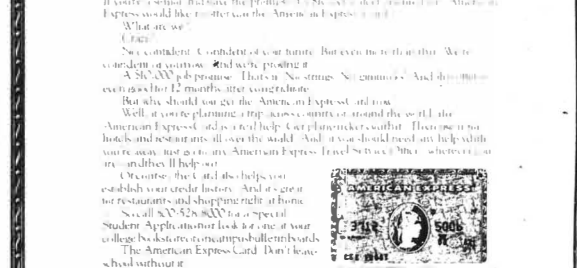 If you're a senior
Express would like to offer you the American Express Card.
What are we?
Crazy?
No, confident. Confident of your future. But even more than that. We're
confident of you now. And we're proving it.
A $10,000 job promise. That's it. No strings. No gimmicks. And this offer is
even good for 12 months after you graduate.
But why should you get the American Express Card now?
Well, if you're planning a trip across country or around the world, the
American Express Card is a real help. Get plane tickets with it. Then use it for
hotels and restaurants all over the world. And, if you should need any help while
you're away, just go to any American Express Travel Service Office wherever you
are and they'll help out.
Of course, the Card also helps you
establish your credit history. And it's great
for restaurants and shopping right at home.
So call 800-528-8000 for a Special
Student Application or look for one at your
college bookstore or on campus bulletin boards.
The American Express Card. Don't leave
school without it.
AMERICAN EXPRESS